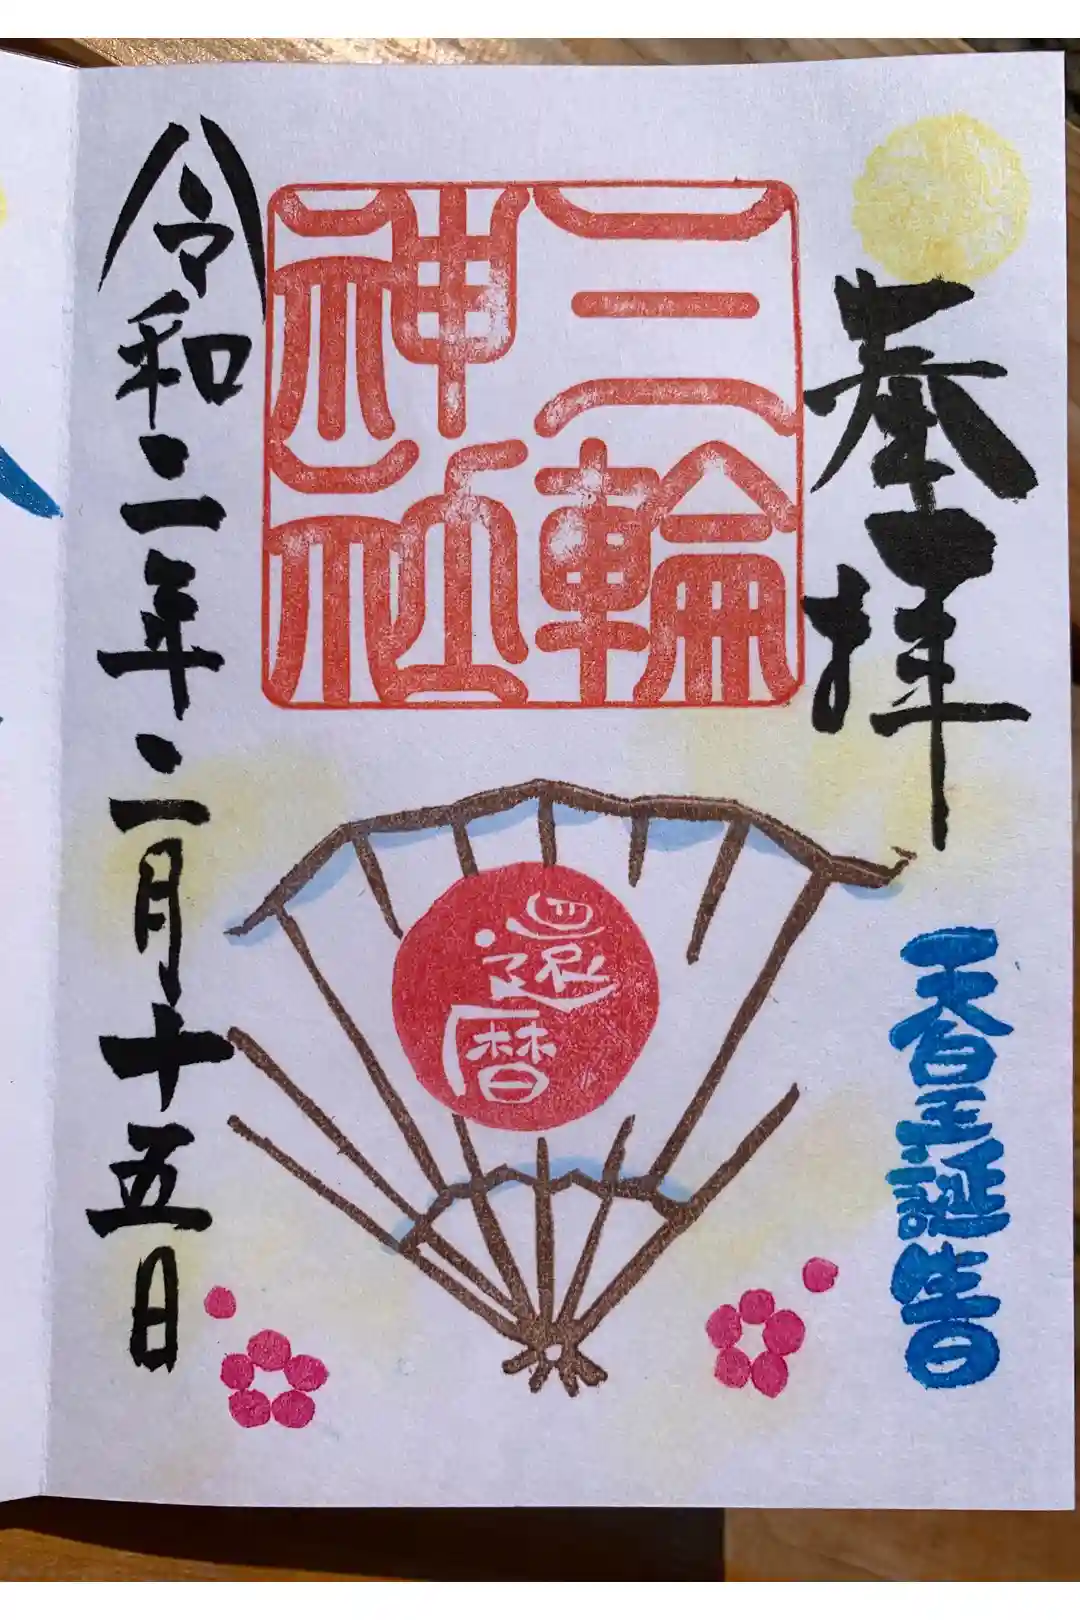 奉拝
天皇誕生日
三輪
神社
還暦
令和二年二月十五日